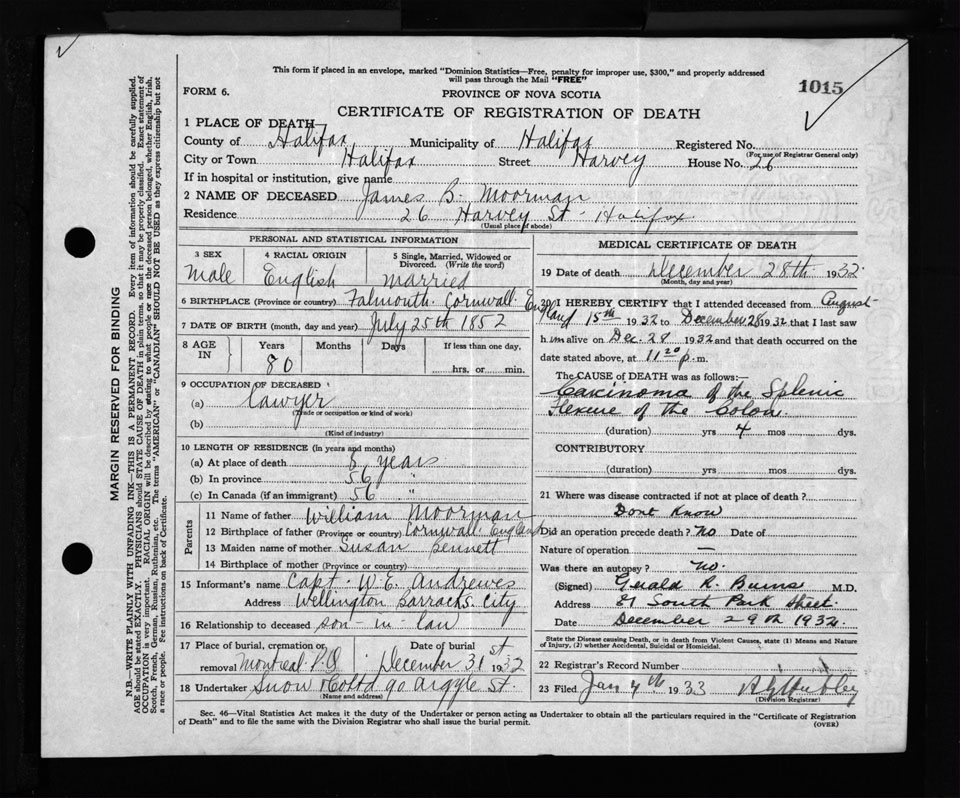 This form if placed in an envelope, marked "Dominion Statistics—Free, penalty for improper use, $300," and properly addressed
will pass through the Mail "FREE"
FORM 6.
PROVINCE OF NOVA SCOTIA
1015
CERTIFICATE OF REGISTRATION OF DEATH
1 PLACE OF DEATH—
County of Halifax Municipality of Halifax Registered No.
(For use of Registrar General only)
City or Town Halifax Street Harvey House No. 26
If in hospital or institution, give name
2 NAME OF DECEASED James B. Moorman
Residence 26 Harvey St - Halifax.
(Usual place of abode)
PERSONAL AND STATISTICAL INFORMATION
3 SEX
Male
4 RACIAL ORIGIN
English
5 Single, Married, Widowed or
Divorced. (Write the word)
Married
6 BIRTHPLACE (Province or country) Falmouth. Cornwall. England
7 DATE OF BIRTH (month, day and year) July 25th 1852
8 AGE IN
Years Months Days If less than one day,
80
hrs. or min.
9 OCCUPATION OF DECEASED
(a) Lawyer
(Trade or occupation or kind of work)
(b)
(Kind of industry)
10 LENGTH OF RESIDENCE (in years and months)
(a) At place of death years
(b) In province 56 "
(c) In Canada (if an immigrant) 56 "
Parents
11 Name of father William Moorman
12 Birthplace of father (Province or country) Cornwall England
13 Maiden name of mother Susan Bennett
14 Birthplace of mother (Province or country)
15 Informant's name Capt. W. E. Andrewes
Address Wellington Barracks. City
16 Relationship to deceased son-in-law
17 Place of burial, cremation or removal Montreal P.Q
Date of burial December 31st 1932
18 Undertaker Snow & Co Ltd 90 Argyle St.
(Name and address)
MEDICAL CERTIFICATE OF DEATH
19 Date of death December 28th 1932
(Month, day and year)
20 I HEREBY CERTIFY that I attended deceased from August
15th 1932 to December 28 1932 that I last saw
him alive on Dec. 28 1932 and that death occurred on the
date stated above, at 11 20 p.m.
The CAUSE of DEATH was as follows:—
Carcinoma of the Splenic
Flexure of the Colon.
(duration) yrs 4 mos dys.
CONTRIBUTORY
(duration) yrs mos dys.
21 Where was disease contracted if not at place of death?
Dont Know
Did an operation precede death? No Date of
Nature of operation —
Was there an autopsy? No.
(Signed) Gerald R. Burns M.D.
Address South Park Street.
Date December 29th 1932
State the Disease causing Death, or in death from Violent Causes, state (1) Means and Nature
of Injury, (2) whether Accidental, Suicidal or Homicidal.
22 Registrar's Record Number
23 Filed Jan 4th 1933
(Division Registrar)
Sec. 46—Vital Statistics Act makes it the duty of the Undertaker or person acting as Undertaker to obtain all the particulars required in the "Certificate of Registration
of Death" and to file the same with the Division Registrar who shall issue the burial permit.
(OVER)
MARGIN RESERVED FOR BINDING
N.B.—WRITE PLAINLY WITH UNFADING INK—THIS IS A PERMANENT RECORD. Every item of information should be carefully supplied.
AGE should be stated EXACTLY. PHYSICIANS should STATE CAUSE OF DEATH in plain terms, so that it may be properly classified. Exact statement of
OCCUPATION is very important. RACIAL ORIGIN will be described by stating to what people or race the deceased person belonged, whether English, Irish,
Scotch, French, German, Russian, Ruthenian, etc. The terms "AMERICAN" or "CANADIAN" SHOULD NOT BE USED as they express citizenship but not
a race or people. Fee instructions on back of Certificate.